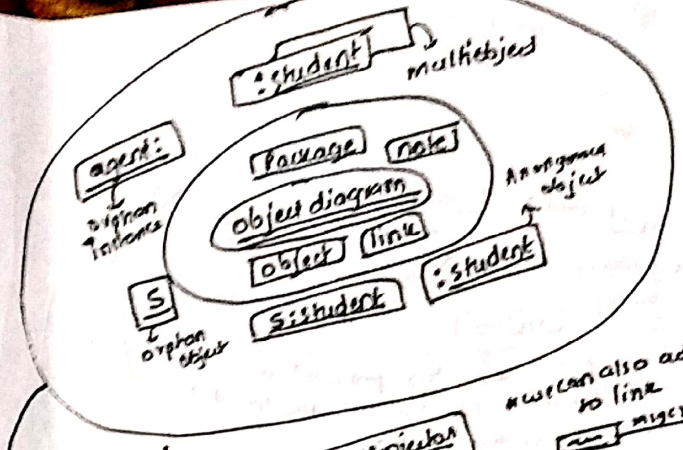 :student
multiobject
agent:
orphan
instance
Package
note
object diagram
object
link
Anonymous
object
:student
S
orphan
object
S:student
we can also ad
to link